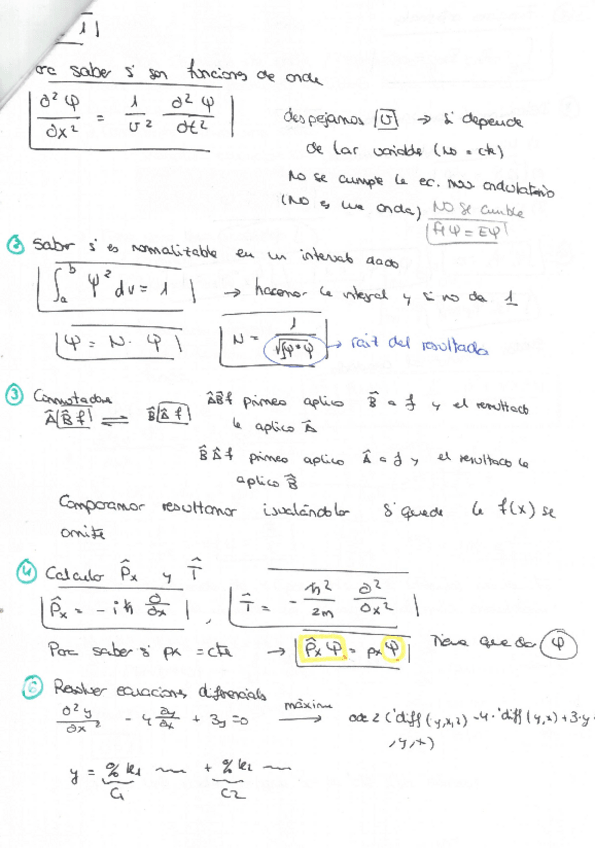 saber si son funciones de onda
∂²Ψ/∂x² = 1/v² ∂²Ψ/∂t²
despejamos v → si depende
de las variables (no = cte)
No se cumple la ec. mov ondulatorio
(No es una onda) NO se cumple
ĤΨ = EΨ
② Saber si es normalizable en un intervalo dado
∫ₐᵇ Ψ² dv = 1 → hacemos la integral y si no da 1
Ψ = N · Ψ N = 1/√∫Ψ*Ψ → raiz del resultado
③ Conmutadores
Â[B̂ f] ⇌ B̂[Â f]
ÂB̂f primero aplico B̂ a f y el resultado
le aplico Â
B̂Âf primero aplico Â a f y el resultado le
aplico B̂
Comparamos resultamos igualándolos si queda la f(x) se
omite
④ Calculo P̂x y T̂
P̂x = -iħ ∂/∂x , T̂ = - ħ²/2m ∂²/∂x²
Para saber si px = cte → P̂xΨ = pxΨ Tiene que dar Ψ
Resolver ecuaciones diferenciales
∂²y/∂x² - 4 ∂y/∂x + 3y = 0 máxima → ode2('diff(y,x,2)-4·'diff(y,x)+3·y
,y,x)
y = %k1 + %k2
C1 C2